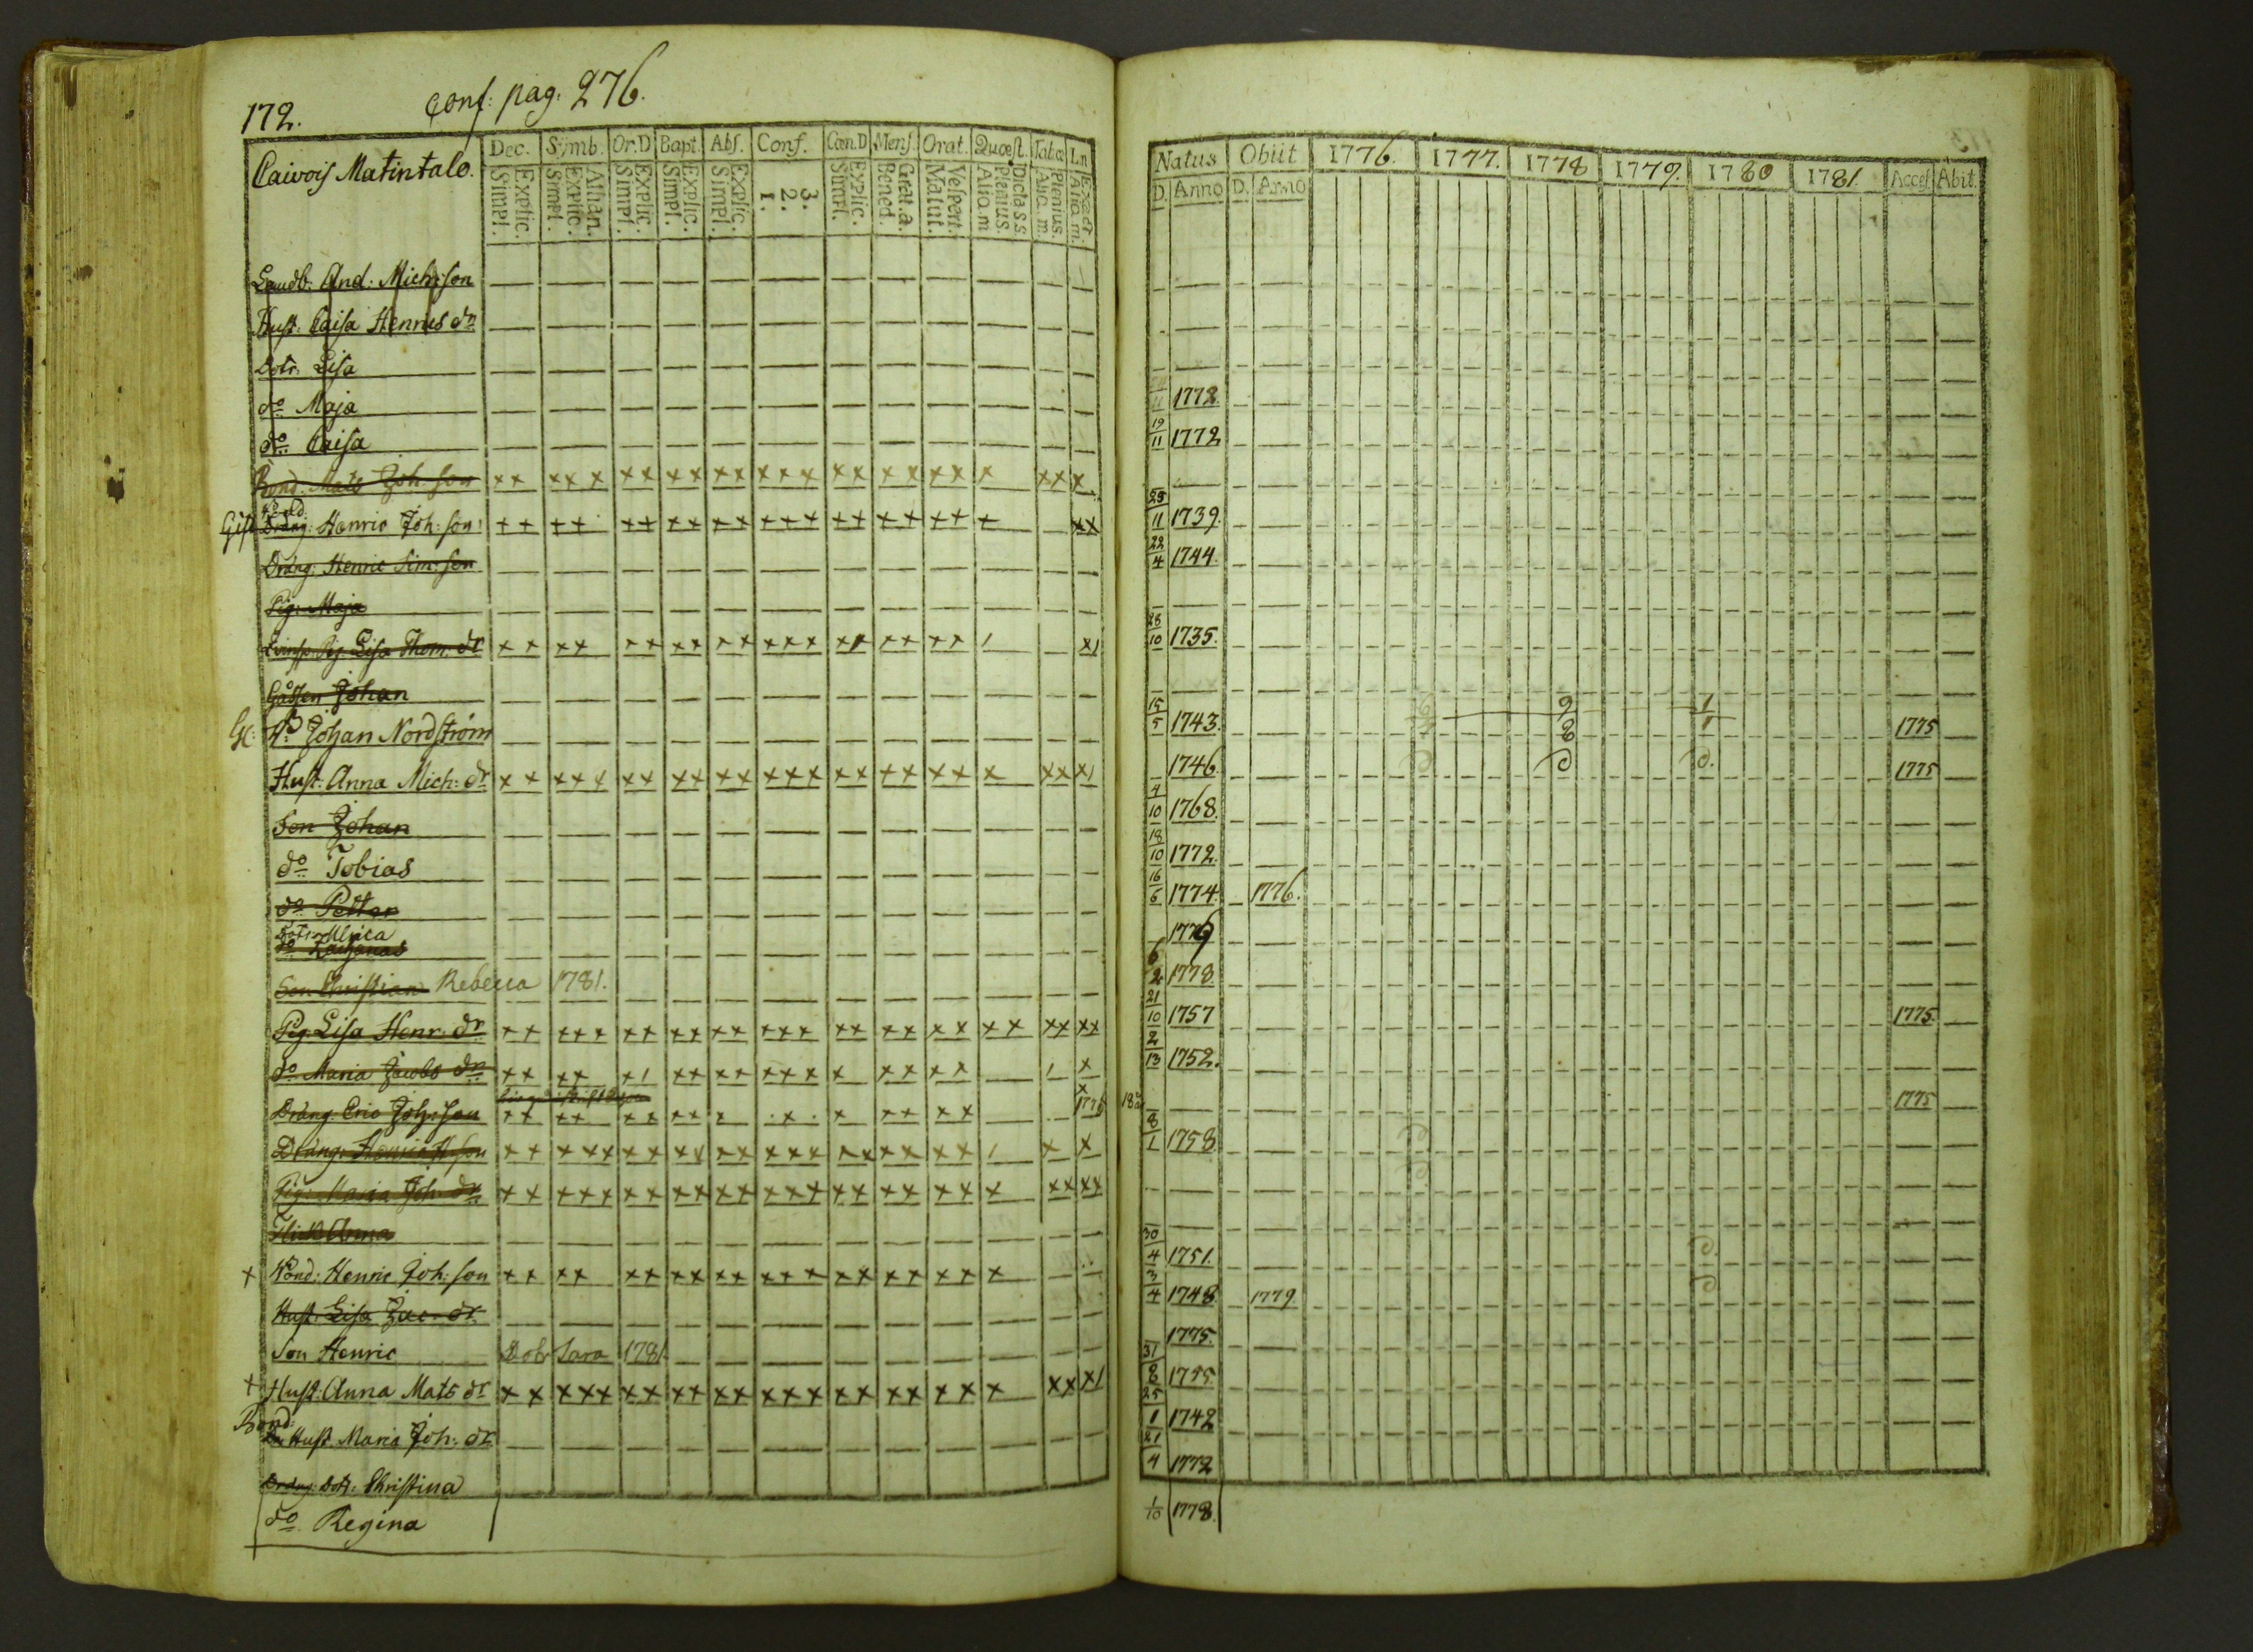 172.
conf: pag: 276.
Caivois Matintalo.
Dec. Simb. Or.D Bapt. Abs. Conf. Cœn.D Mens. Orat. Quæst. Tabœ Ln
Explic. Simpl.
Athan. Explic. Simpl.
Explic. Simpl.
Explic. Simpl.
Explic. Simpl.
3. 2. 1.
Explic. Simpl.
Grat.a. Bened.
Vespert. Matut.
Dictass. Plenius. Aliq.m
Plenius. Aliq.m.
Exact Aliq.m.
And: Mich:son
Hust: Caisa Henrics dr
Dotr. Lisa
do Maja
do Caisa
Bond. Mats Joh. son
Gift Bond Dräng: Henric Joh: son
Dräng: Henric Sim: son
Pig: Maja
Pig. Lisa Thom: dr
Gåssen Johan
Johan Nordström
Hust: Anna Mich: dr
Son Johan
do Tobias
do Petter
Dotr Ulrica
do Zacharias
Son Christian Rebecca 1781.
Pig. Lisa Henr: dr
do Maria Jacobs dr
Dräng. Eric Joh: son
1776
Dräng: Henric H: son
Pig: Maria Joh: dr
Flick Anna
Bond: Henric Joh: son
Hust: Lisa Jac: dr
Son Henric Dotr Sara 1781
Hust: Anna Mats dr
Bond:
Hust. Maria Joh: dr
Dräng. Dotr: Christina
do Regina
Natus Obiit 1776. 1777. 1778 1779. 1780 1781. Access. Abit.
D. Anno D. Anno
11 1772.
19/11 1772
25/11 1739.
22/4 1744.
28/10 1735.
15/5 1743. 1775
1746. 1775
4/10 1768.
18/10 1772.
16/6 1774. 1776.
1776
6/2 1778.
21/10 1757 1775.
2/13 1752.
1775
8/1 1758
30/4 1751.
3/4 1748 1779
1775.
31/8 1755
25/1 1742
21/4 1772
1/10 1778.